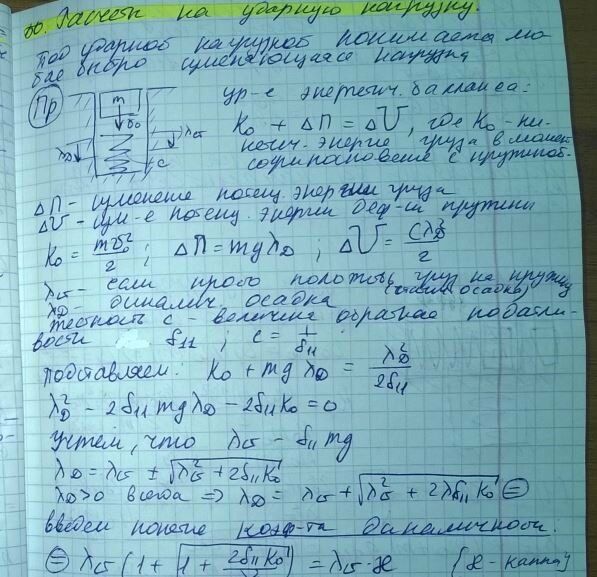 50. Расчёты на ударную нагрузку.
Под ударной нагрузкой понимается любая быстро изменяющаяся нагрузка
Пр
m
v₀
λст
λд
c
ур-е энергетич. баланса:
K₀ + ΔП = ΔU, где K₀ - ки-
нетич. энергия груза в момент
соприкосновения с пружиной.
ΔП - изменение потенц. энергии груза
ΔU - изм-е потенц. энергии деф-ии пружины
K₀ = mv₀²/2 ; ΔП = mgλд ; ΔU = cλд²/2
λст - если просто положить груз на пружину
λд - динамич. осадка (статич. осадка)
жёсткость c - величина обратная податли-
вости δ₁₁ ; c = 1/δ₁₁
Подставляем: K₀ + mgλд = λд²/2δ₁₁
λд² - 2δ₁₁mgλд - 2δ₁₁K₀ = 0
Учтем, что λст - δ₁₁mg
λд = λст ± √(λст² + 2δ₁₁K₀)
λд>0 всегда ⇒ λд = λст + √(λст² + 2λδ₁₁K₀) ⊜
введем понятие коэф-та динамичности.
⊜ λст (1 + √(1 + 2δ₁₁K₀/λ²)) = λст·æ {æ - каппа}